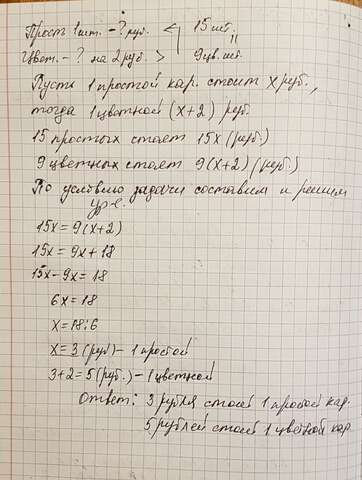 Прост 1 шт. - ? руб. < 15 шт.
||
Цвет. - ? на 2 руб. > 9 цв. шт.
Пусть 1 простой кар. стоит х руб.,
тогда 1 цветной (х+2) руб.
15 простых стоят 15х (руб.)
9 цветных стоят 9(х+2) (руб.)
По условию задачи составим и решим
ур-е.
15х = 9(х+2)
15х = 9х + 18
15х - 9х = 18
6х = 18
х = 18:6
х = 3 (руб) - 1 простой
3+2=5 (руб.) - 1 цветной
Ответ: 3 рубля стоит 1 простой кар.
5 рублей стоит 1 цветной кар.